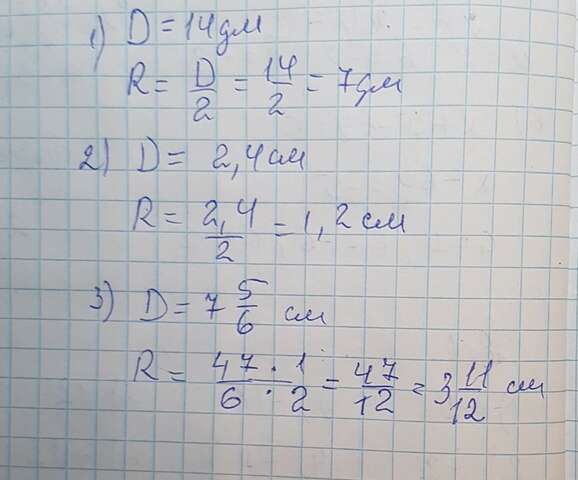 1) D = 14 дм
R = D/2 = 14/2 = 7 дм
2) D = 2,4 см
R = 2,4/2 = 1,2 см
3) D = 7 5/6 см
R = 47 · 1/6 · 2 = 47/12 = 3 11/12 см